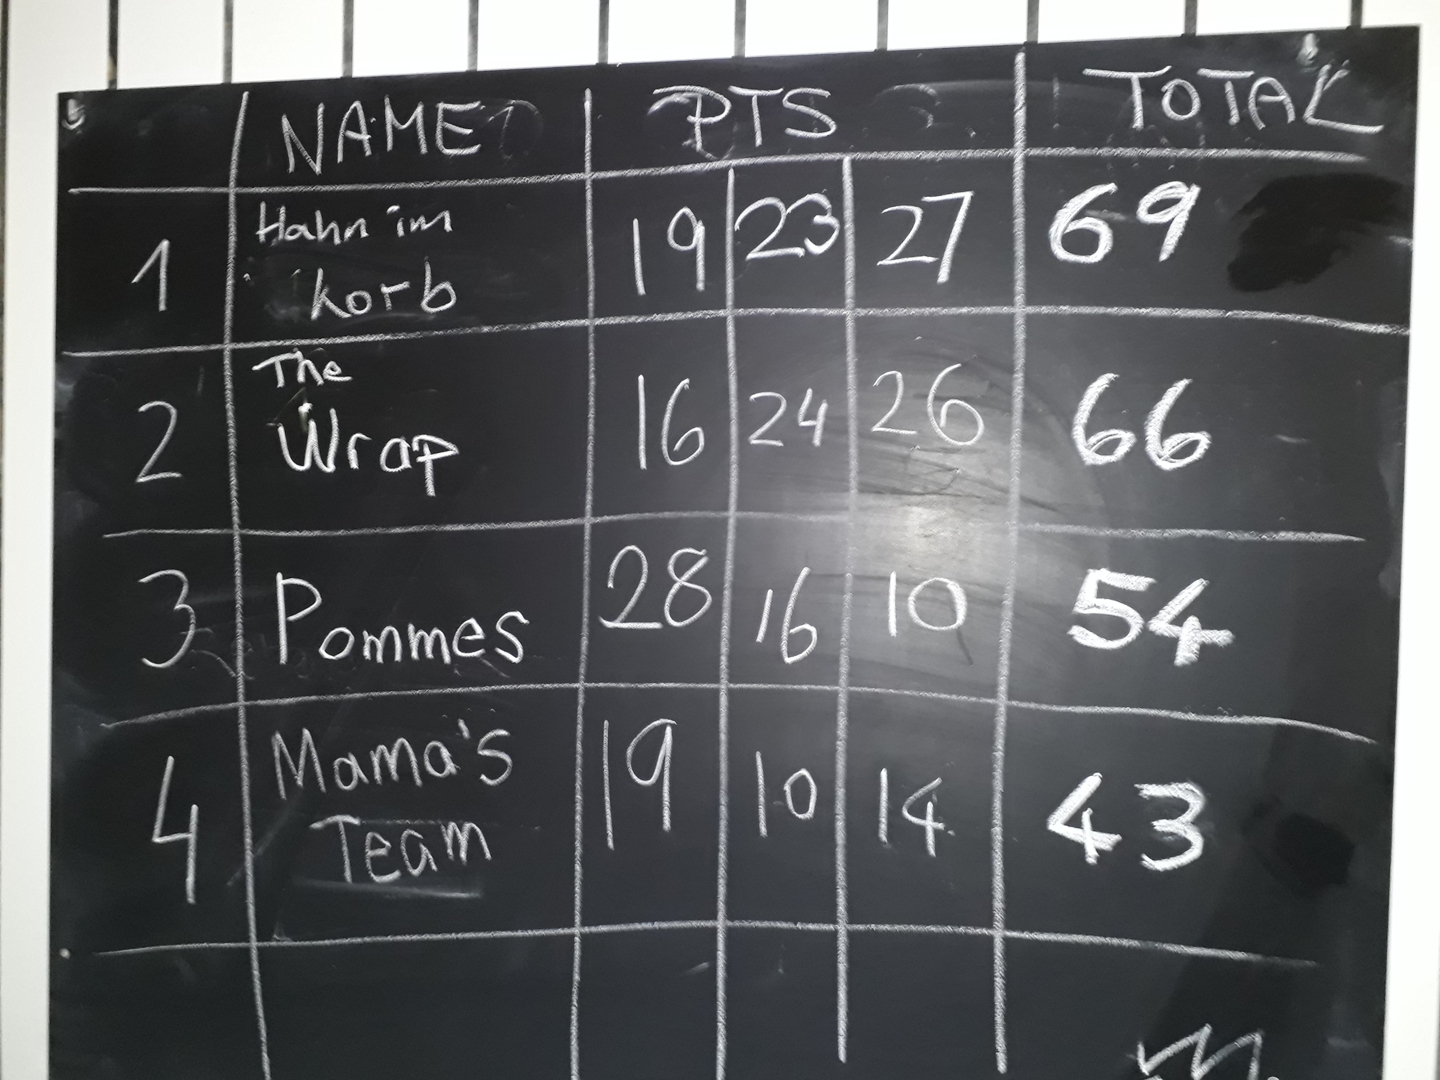 NAME PTS TOTAL
1 Hahn im 19 23 27 69
korb
The
2 Wrap 16 24 26 66
3 Pommes 28 16 10 54
4 Mama's 19 10 14 43
Team